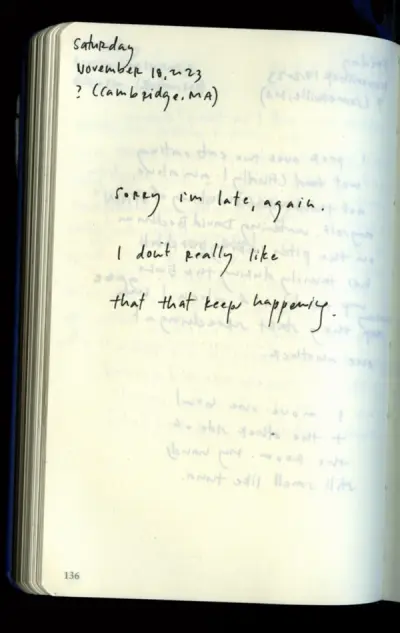 Saturday
November 18, 2023
? (Cambridge, MA)
Sorry i'm late, again.
I don't really like
that that keeps happening.
136